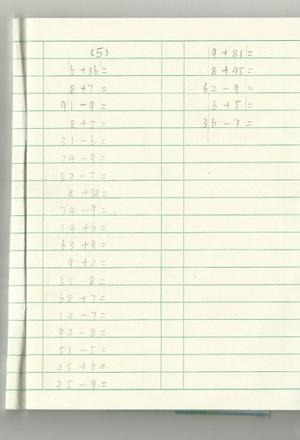 (5)
6+36=
8+7=
91-9=
8+5=
31-6=
74-8=
82-7=
8+78=
74-9=
14+6=
63+9=
9+2=
35-8=
68+7=
14-7=
92-8=
51-5=
25+6=
25-9=
9+81=
8+45=
62-9=
6+5=
36-7=